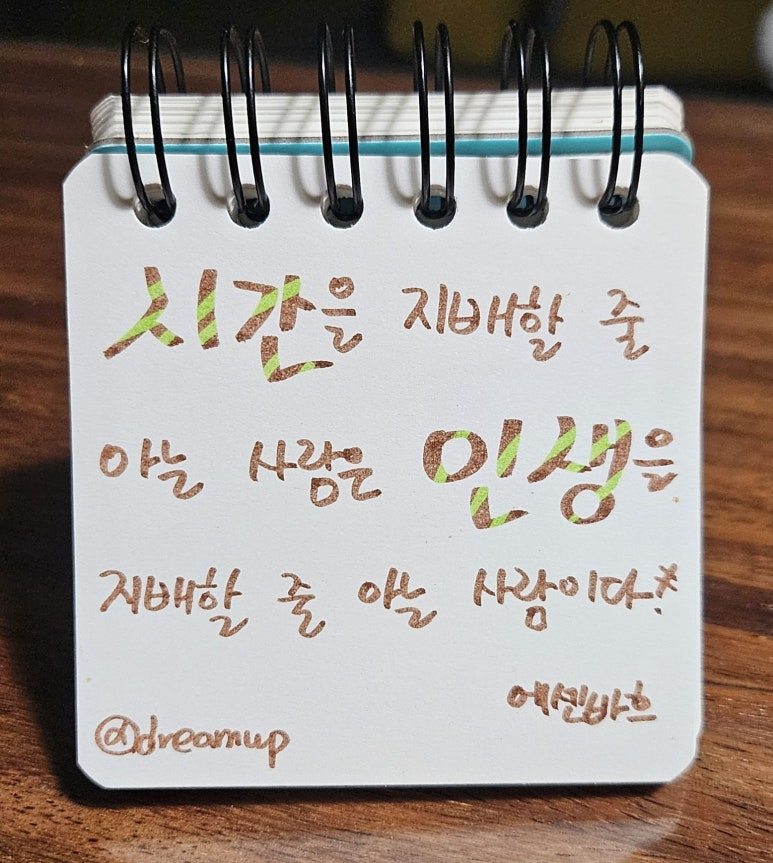 시간을 지배할 줄
아는 사람은 인생을
지배할 줄 아는 사람이다.*
에센바흐
@dreamup